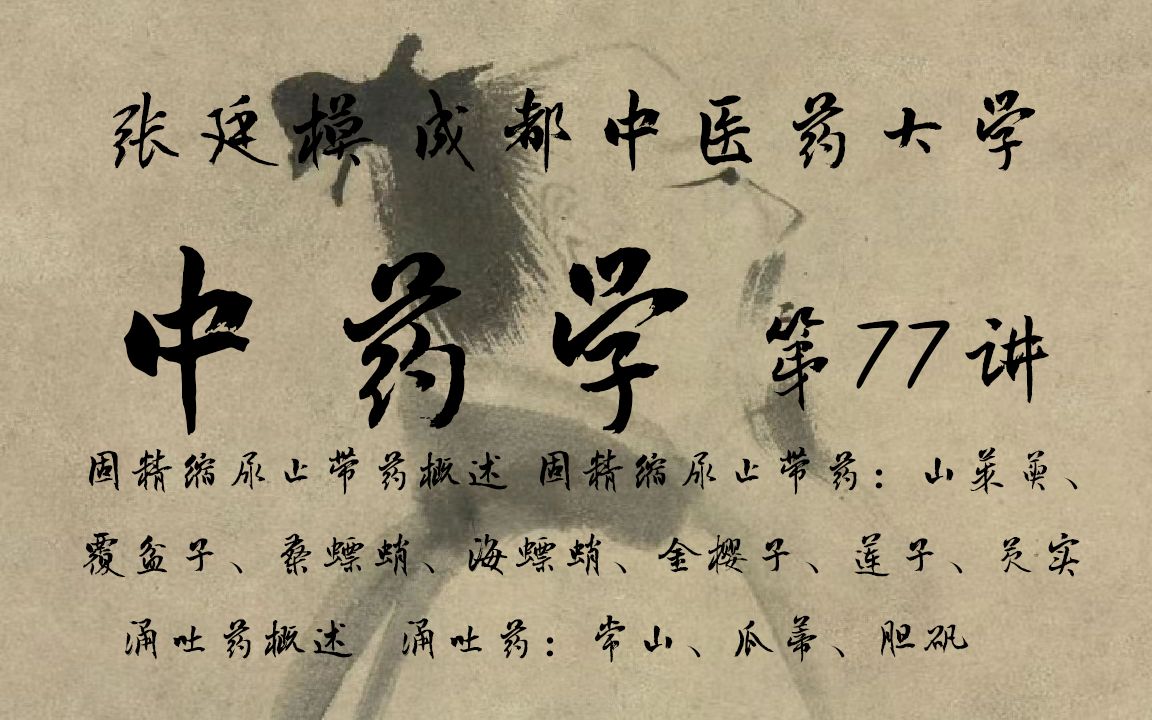 张廷模成都中医药大学
中药学 第77讲
固精缩尿止带药概述 固精缩尿止带药：山茱萸、
覆盆子、桑螵蛸、海螵蛸、金樱子、莲子、芡实
涌吐药概述 涌吐药：常山、瓜蒂、胆矾